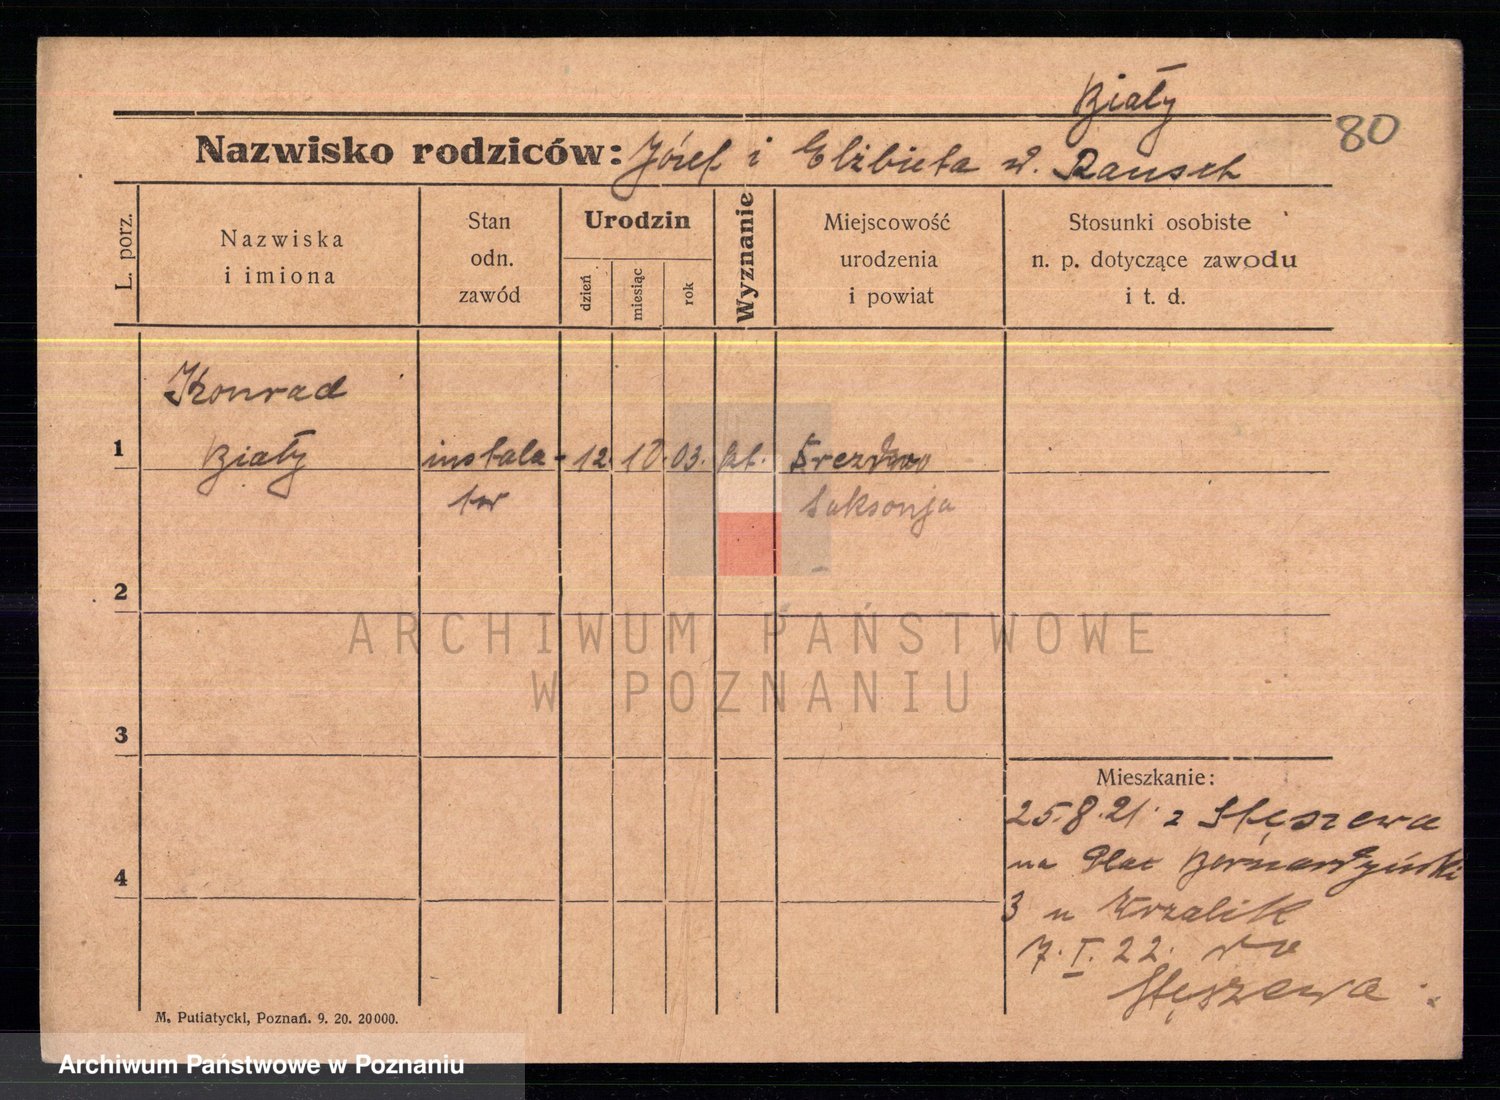 Biały
80
Nazwisko rodziców: Józef i Elżbieta z. Rausch
L. porz.
Nazwiska
i imiona
Stan
odn.
zawód
Urodzin
dzień
miesiąc
rok
Wyznanie
Miejscowość
urodzenia
i powiat
Stosunki osobiste
n. p. dotyczące zawodu
i t. d.
Konrad
1 Biały instala- 12 10 03. kt.
tor Saksonja
2
3
4
Mieszkanie:
25.8.21. z Stęszewa
na Plac Bernardyński
3 u Krzalik
7.I.22. do
Stęszewa
M. Putiatycki, Poznań. 9. 20. 20000.
ARCHIWUM PAŃSTWOWE
W POZNANIU
Archiwum Państwowe w Poznaniu